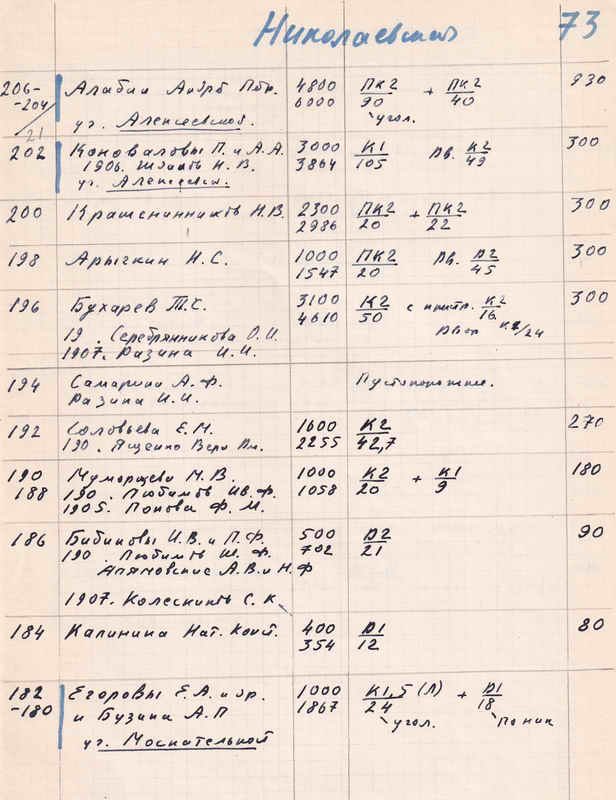 Николаевская 73
206- Алабин Андр Петр. 4800 ПК2/90 + ПК2/40 930
-204 6000 угол.
уг. Алексеевской.
21
202 Коноваловы П. и А.А. 3000 К1/105 Дв. К2/49 300
1906. Н.В. 3864
уг. Алексеевск.
200 Крашенинниковъ Н.В. 2300 ПК2/20 + ПК2/22 300
2986
198 Арычкин И.С. 1000 ПК2/20 Дв. Д2/45 300
1547
196 Бухарев Т.С. 3100 К2/50 с пристр. К2/16 300
4610 Двор К2/24
19 . Серебрянникова О.И.
1907. Разина И.И.
194 Самарина А.Ф. Пустопорожнее.
Разина И.И.
192 Соловьева Е.М. 1600 К2/42,7 270
190 . Ященко Вера Ам. 2255
190 Муморцева М.В. 1000 К2/20 + К1/9 180
188 190 . Любимовъ Ив. Ф. 1058
1905. Попова Ф.М.
186 Бибиковы И.В. и П.Ф. 500 Д2/21 90
190 . Любимовъ И. Ф. 702
Аляновские А.В. и Н.Ф
1907. Колесниковъ С.К
184 Калинина Нат. Конст. 400 Д1/12 80
354
182 Егоровы Е.А. и др. 1000 К1,5 (Л)/24 + Д1/18
-180 и Бузина А.П 1867 угол. по ник
уг. Москательной